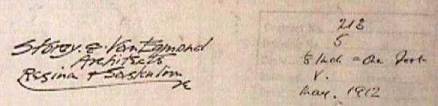 Storey & Van Egmond
Architects
Regina & Saskatoon
213
5
1/8 Inch = One Foot
V.
May. 1912